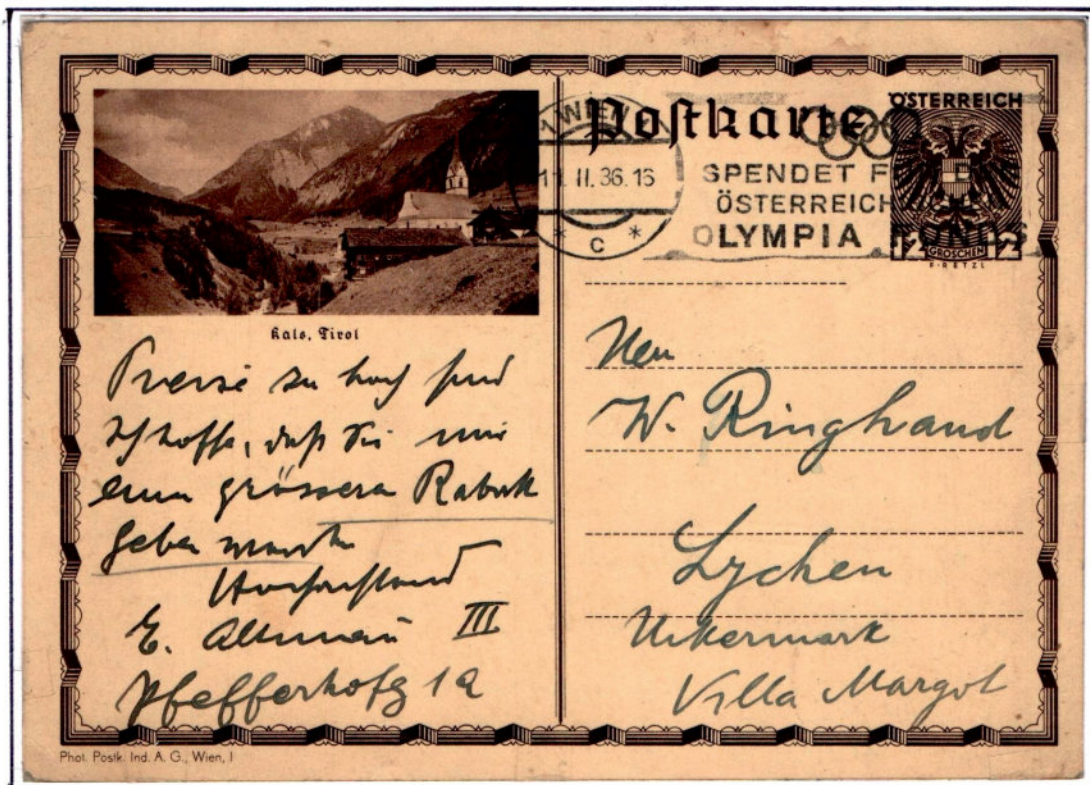 Postkarte
ÖSTERREICH
1 WIEN
11. II. 36. 16
* C *
SPENDET F
ÖSTERREICH
OLYMPIA FONDS
12 GROSCHEN 12
Kals, Tirol
Preise zu hoch sind
Ich hoffe, daß Sie mir
einen grössern Rabatt
geben werden
Hochachtend
E. III
Pfefferhofg 1a
W. Ringhand
Lychen
Uckermark
Villa Margot
Phot. Postk. Ind. A. G., Wien, I